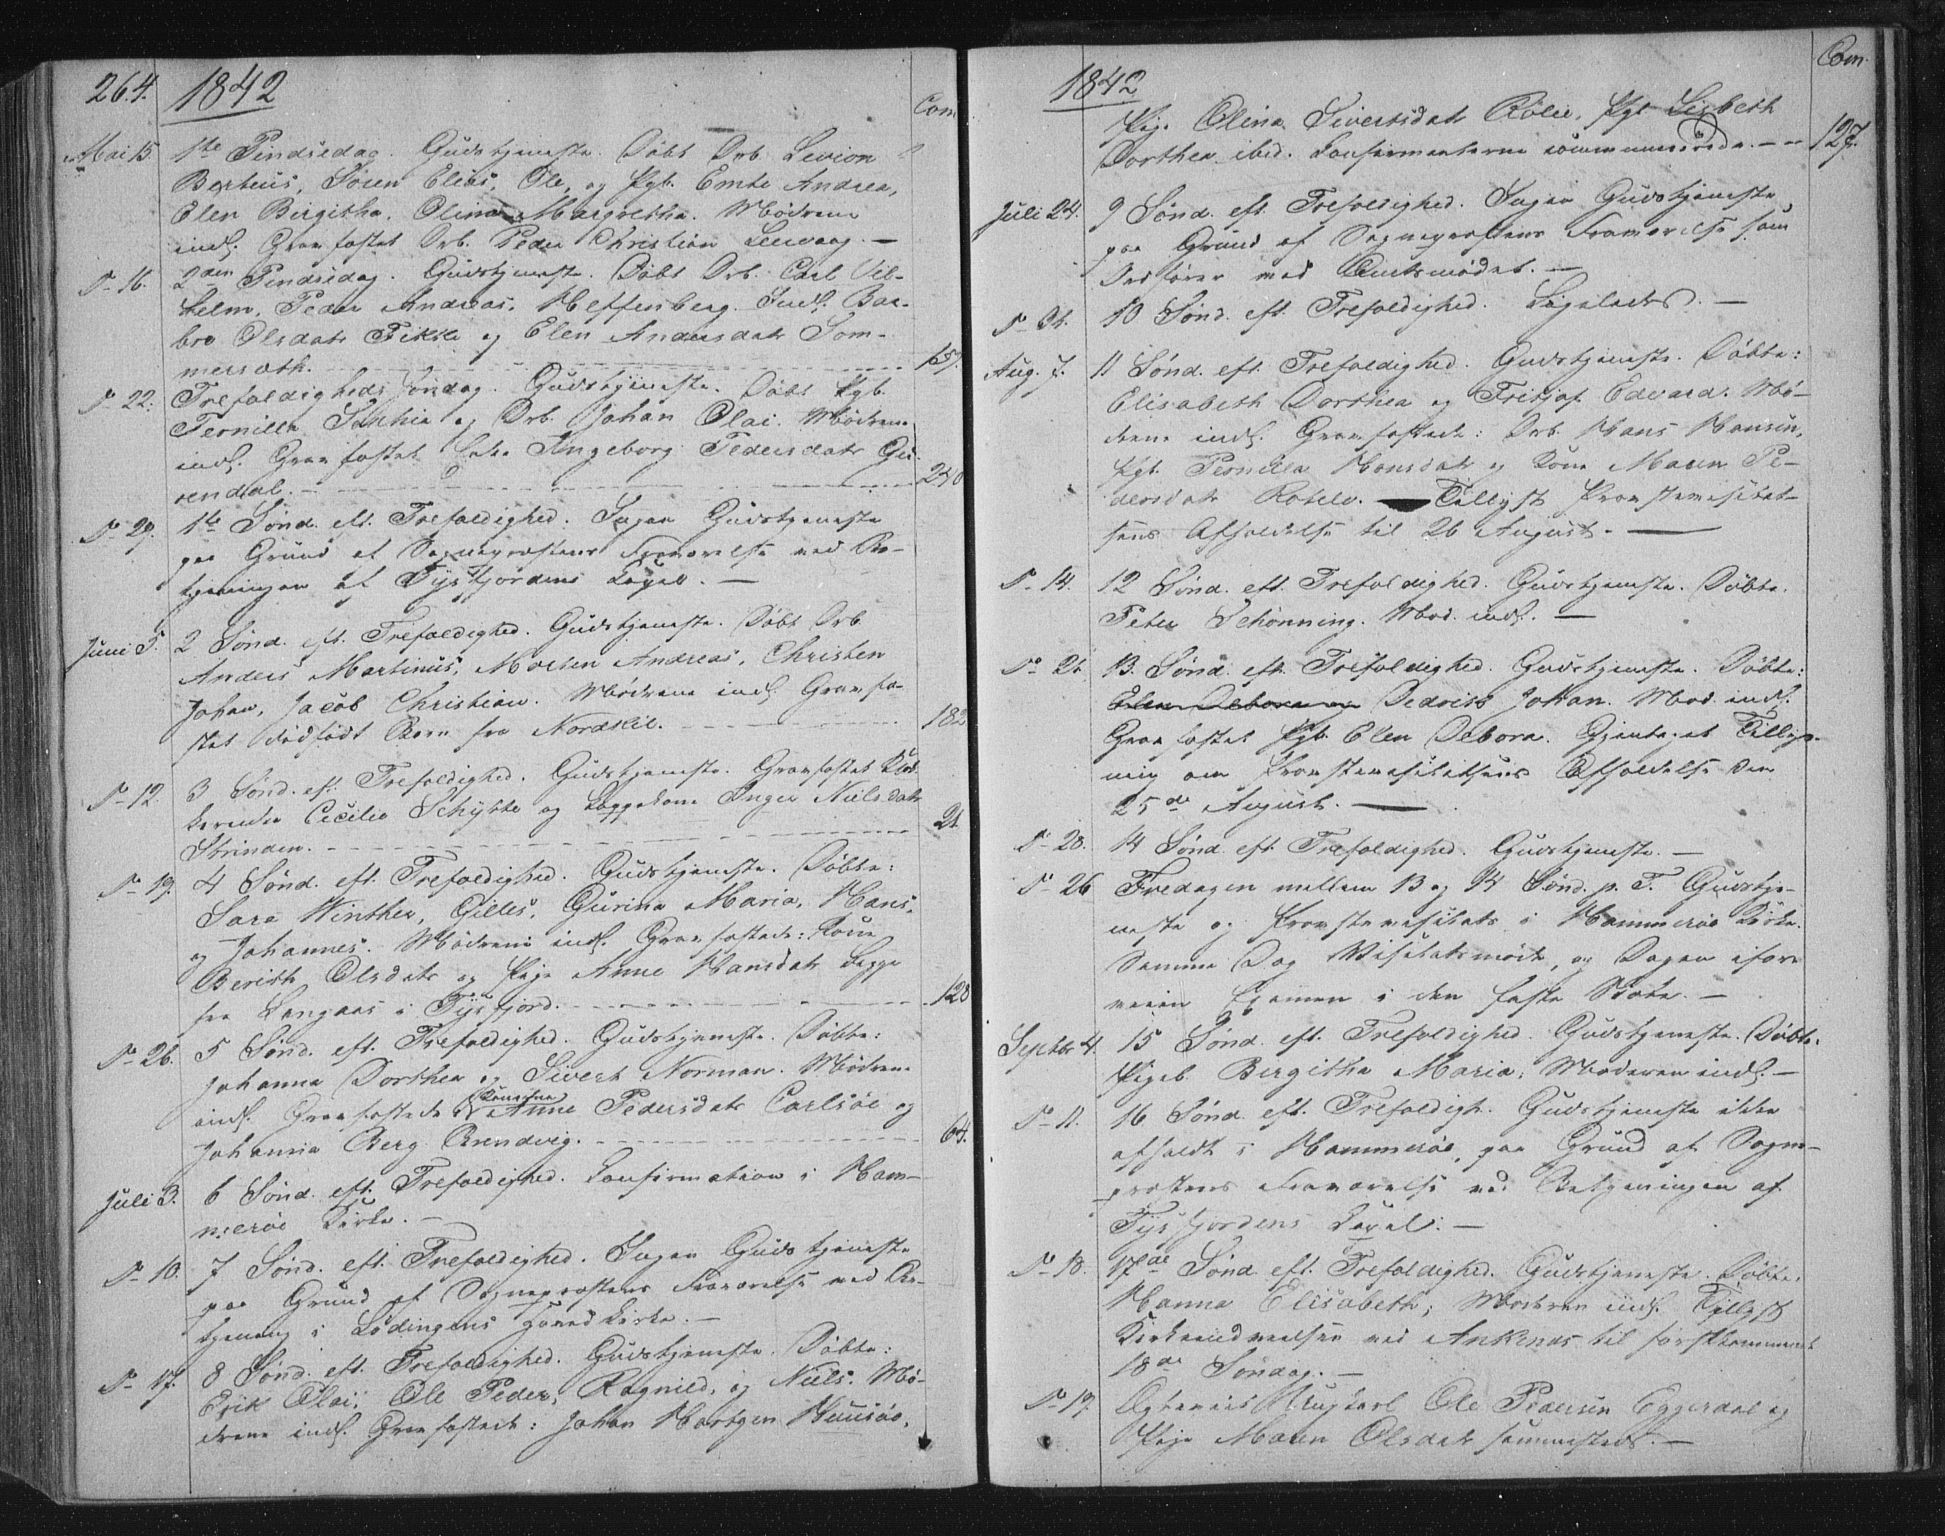 264. 1842
Com
Mai 15. 1ste Pindsedag. Gudstjeneste. Døbt Drb. Sevion
Berteus, Søren Elias, Ole, og Pgb. Emte Andrea,
Elen Birgitha, Olina Margretha. Mødrene
indl. Gravfæstet Drb. Peder Christian Leervaag. —
D– 16. 2den Pindsedag. Gudstjeneste. Døbt Drb. Carl Vil-
helm, Peder Andreas, Heffenberg. Indl. Bar-
bro Olsdatr Fikke og Elen Andersdatr Som-
mersæth. 157.
D– 22. Trefoldigheds Søndag. Gudstjeneste. Døbt Pgb.
Pernille Sophia og Drb. Johan Olai. Mødrene
indl. Gravfæstet Enke Ingeborg Pedersdatr
rendal. — 240
D– 29. 1ste Sønd. eft. Trefoldighed. Ingen Gudstjeneste
paa Grund af Sognepræstens Fraværelse ved Be-
tjeningen af Tysfjordens Capel. —
Juni 5. 2 Sønd. eft. Trefoldighed. Gudstjeneste. Døbt Drb
Anders Martinus, Morten Andreas, Christen
Johan, Jacob Christian. Mødrene indl. Gravfæ-
stet dødfødt Barn fra Nordskil. 182
D– 12. 3 Sønd. eft. Trefoldighed. Gudstjeneste. Gravfæstet
Cecilie Schytte og Lappekone Inger Nielsdatr
Strinden. 21
D– 19. 4 Sønd. eft. Trefoldighed. Gudstjeneste. Døbte:
Sara Winther, Gilles, Gurina Maria, Hans,
og Johannes. Mødrene indl. Gravfæstede: Kone
Berith Olsdatr og Pige Anne Hansdatr Lapp
fra Langaas i Tysfjord. 128
D– 26. 5 Sønd. eft. Trefoldighed. Gudstjeneste. Døbte:
Johanna Dorthea og Sivert Norman. Mødrene
indl. Gravfæstede Konerne Anne Pedersdatr Carlsøe og
Johanna Berg Brendvig. 64.
Juli 3. 6 Sønd. eft. Trefoldighed. Confirmation i Ham-
merøe Kirke. —
D– 10. 7 Sønd. eft. Trefoldighed. Ingen Gudstjeneste
paa Grund af Sognepræstens Fraværelse ved Be-
tjening i Lødingens Hovedkirke. —
D– 17. 8 Sønd. eft. Trefoldighed. Gudstjeneste. Døbte:
Erik Olai, Ole Peder, Ragnild, og Niels. Mø-
drene indl. Gravfæstede: Johan Hartgen
1842
Com.
Pige Olina Sivertsdatr Rølie, Pgb Lisbeth
Dorthea ibid. Confirmanterne communicerede. — 127.
Juli 24. 9 Sønd. eft. Trefoldighed. Ingen Gudstjeneste
paa Grund af Sognepræstens Fraværelse som
Ordfører ved Amtsmødet. —
D– 31. 10 Sønd. eft. Trefoldighed. Ligeledes. —
Aug. 7. 11 Sønd. eft. Trefoldighed. Gudstjeneste. Døbte:
Elisabeth Dorthea og Fritjof Edvard. Mø-
drene indl. Gravfæstede: Drb. Hans Hansen,
Pgb. Pernille Hansdatr og Kone Maren Pe-
dersdatr Rotelv. — Tillyst Provstevisitat-
sens Afholdelse til 26 August. —
D– 14. 12 Sønd. eft. Trefoldighed. Gudstjeneste. Døbte.
Peter Schønning. Mod. indl. —
D– 21. 13. Sønd. eft. Trefoldighed. Gudstjeneste. Døbte:
Elen Debora og Dedrich Johan. Mod. indl.
Gravfæstet Pgb. Elen Debora. Gjentaget Tillys-
ning om Provstevisitatsens Afholdelse den
25de August. —
D– 28. 14 Sønd. eft. Trefoldighed. Gudstjeneste. —
D– 26 Fredagen mellem 13 og 14 Sønd. p. T. Gudstje-
neste og Provstevisitats i Hammerøe Kirke.
Samme Dag Visitatsmøde, og Dagen ifor-
veien Examen i den faste Skole. —
Septbr 4. 15 Sønd. eft. Trefoldighed. Gudstjeneste. Døbte.
Pigeb. Bergitha Maria. Moderen indl. —
D– 11. 16 Sønd. eft. Trefoldigh. Gudstjeneste ikke
afholdt i Hammerøe, paa Grund af Sogne-
præstens Fraværelse ved Betjeningen af
Tysfjordens Capel. —
D– 18. 17de Sønd. eft. Trefoldighed. Gudstjeneste. Døbte.
Hanna Elisabeth; Moderen indl. Tillyst
Kirkeindvielsen ved Ankenæs til førstkommende
18de Søndag. —
D– 19. Ægteviet Ungkarl Ole Pedersen Eggerdal og
Pige Maren Olsdatr sammesteds. —